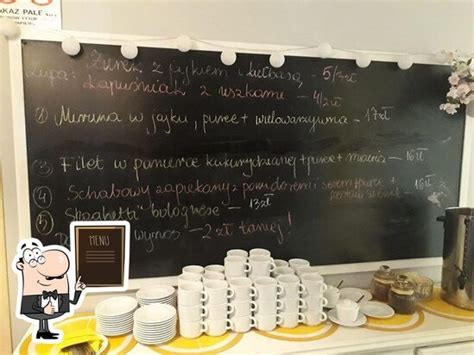 KAZ PALE
Zupa: Żurek z jajkiem i kiełbasą - 5/7zł
Kapuśniak z uszkami - 4/2zł
① Miruna w jajku, puree + wielowarzywna - 17zł
③ Filet w panierce kukurydzianej + puree + mizeria - 16zł
④ Schabowy zapiekany z pomidorem i serem + puree + 16zł
⑤ Spaghetti bolognese - 13zł
wynos - 2 zł taniej!
MENU